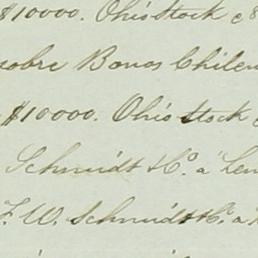 $10000. Ohio Stock c8
sobre Bonos Chilen
$10000. Ohio Stock c
Schmidt & Co. a Len
F. W. Schmidt & Co. a